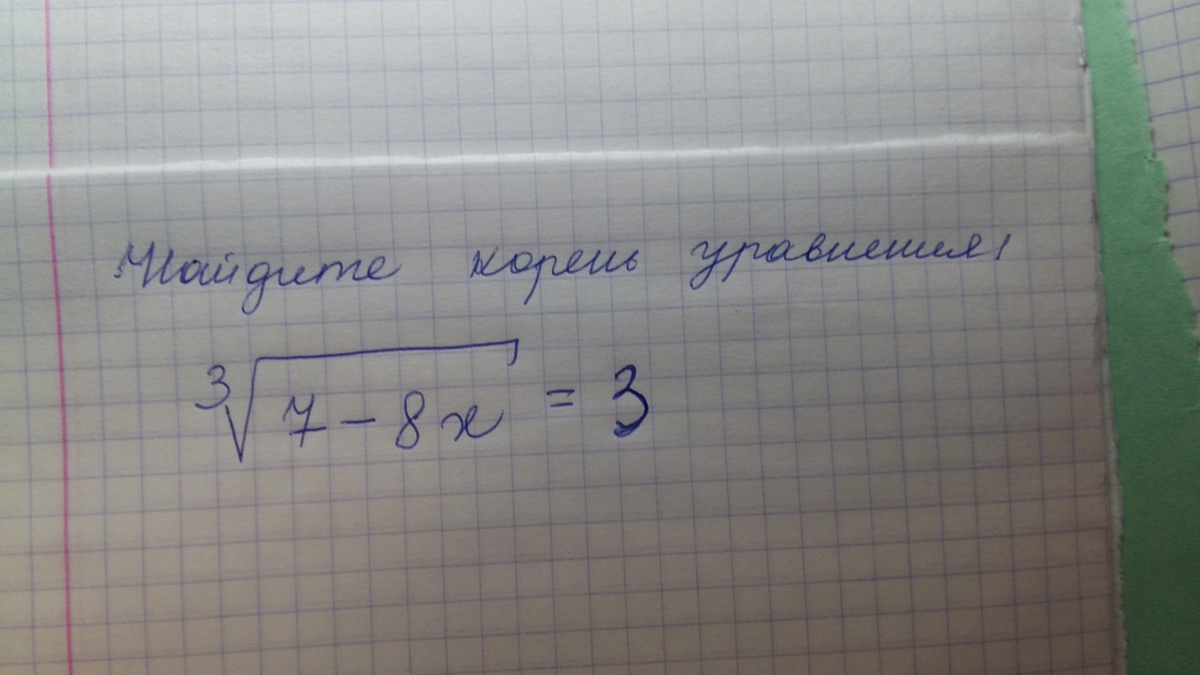 Найдите корень уравнения
∛7-8x = 3